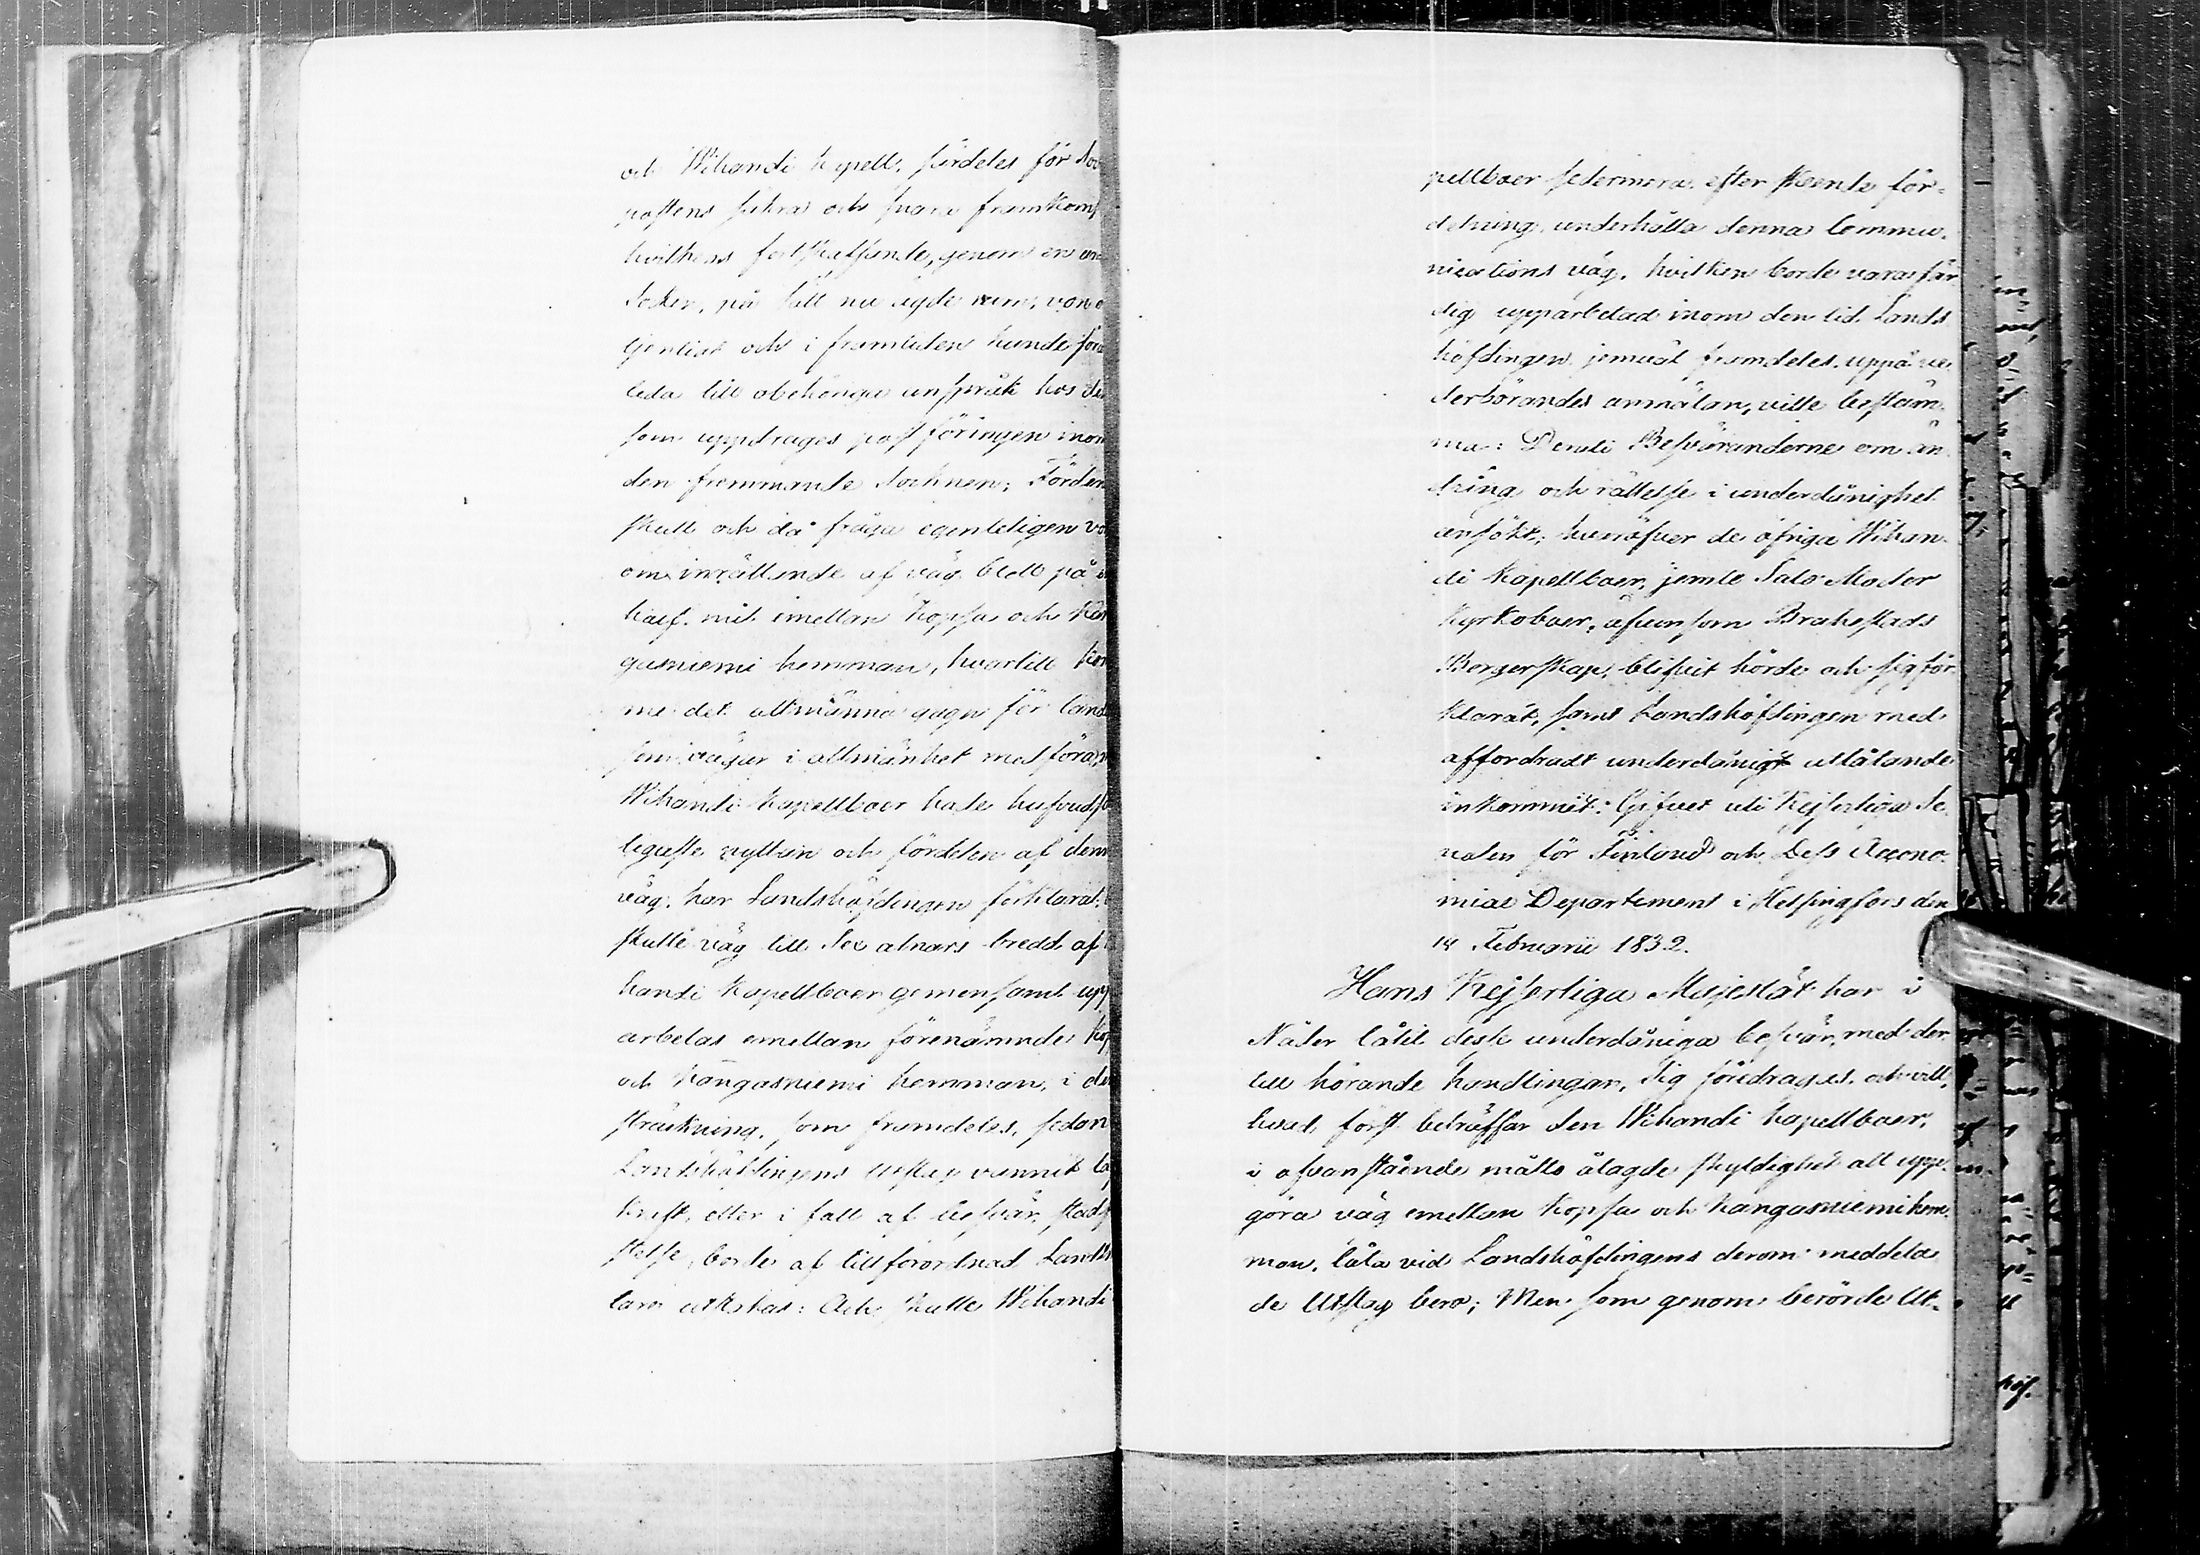 och Wihandi kapell, särdeles för
postens säkra och snara framkomst
hvilkens fortskaffande, genom en
Socken, på sätt nu ägde rum, vore
tjenligt och i framtiden kunde för
leda till obehöriga anspråk hos de
som uppdrages postföringen inom
den frammande Socknen; Förden
skull och då fråga egenteligen
om inrättande af väg blott på
half mil emellan Kopsa och Kan
gasniemi hemman, hvartill
me det allmänna gagn för
som vägar i allmänhet medföra,
Wihandi Kapellboer hafe hufvud
ligaste nyttan och fördelen af den
väg, har Landshöfdingen förklarat,
skulle väg till Sex alnars bredd af
handi Kapellboer gemensamt upp
arbetas emellan förenämnde Kop
och Kangasniemi hemman, i den
sträckning, som framdeles, sedan
Landshöfdingens Utslag vunnit la
kraft, eller i fall af besvär, stad
stelse, borde af tillförordnad Landt
tare utstakas: Och skulle Wihandi
pellboer sedermera efter skeende för-
delning, underhålla denna Commu-
nications väg, hvilken borde vara fär
dig upparbetad inom den tid Lands
höfdingen jemväl framdeles, uppå ve
derbörandes anmälan, ville bestäm-
ma: Deruti Besväranderne om än
dring och rättelse i underdånighet
ansökt; hvaröfver de öfriga Wihan-
di Kapellboer, jemte Salo Moder
Kyrkoboer, äfvensom Brahestads
Borgerskap, blifvit hörde och sig för
klarat, samt Landshöfdingen med
affordradt underdånigt utlåtande
inkommit: Gifvet uti Kejserliga Se
naten för Finland och Dess Oecono-
miae Departement i Helsingfors den
14 Februarii 1832.
Hans Kejserliga Majestät har i
Nåder låtit desse underdåniga besvär, med der
till hörande handlingar, Sig föredragas, och vill,
hvad först beträffar den Wihandi Kapellboer,
i ofvanstående måtto ålagde skyldighet att upp-
göra väg emellan Kopsa och Kangasniemi hem-
man, låta vid Landshöfdingens derom meddela-
de Utslag bero; Men som genom berörde Ut-